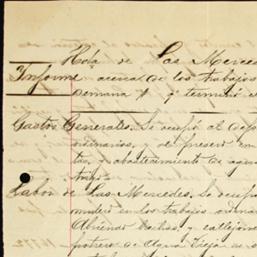 Hda. de Las Merced
Informe acerca de los trabajos
semana y terminó e
Gastos Generales. Se ocupó al depe
ordinarios, de present en
tas, y abastecimiento de agua
Labor de Las Mercedes. Se ocupa
en los trabajos ordina
Abriendo hachas, y callejone
potrero de Agua Vieja